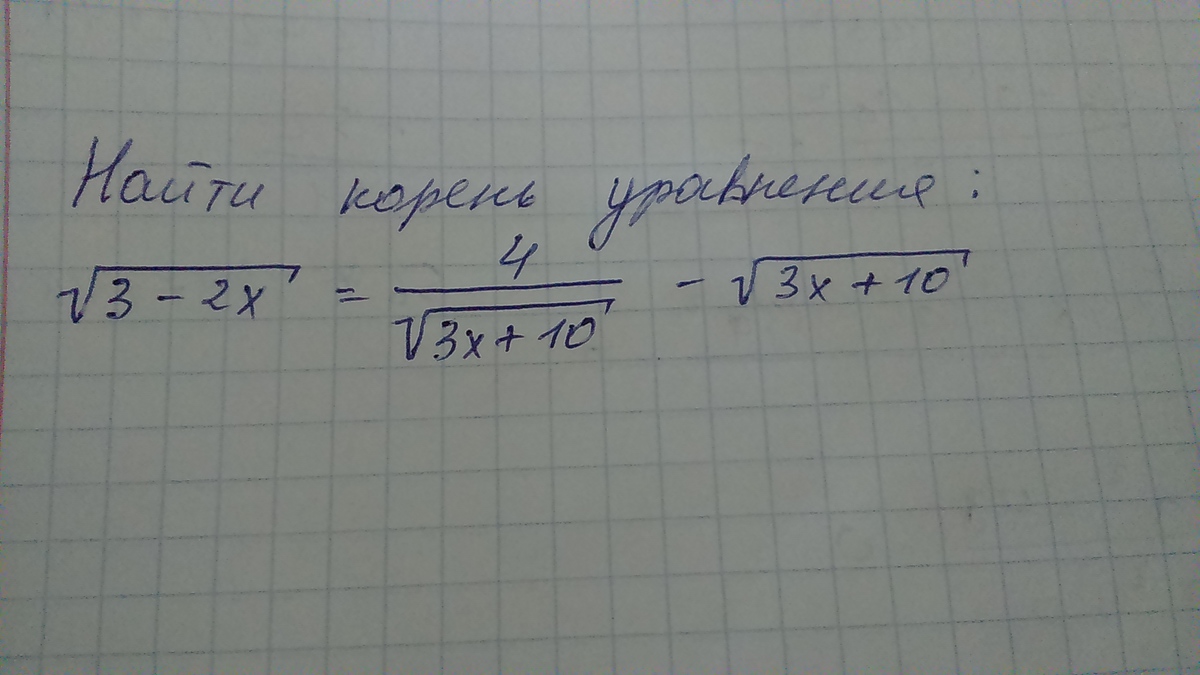 Найти корень уравнения:
√(3 - 2x) = 4/√(3x + 10) - √(3x + 10)